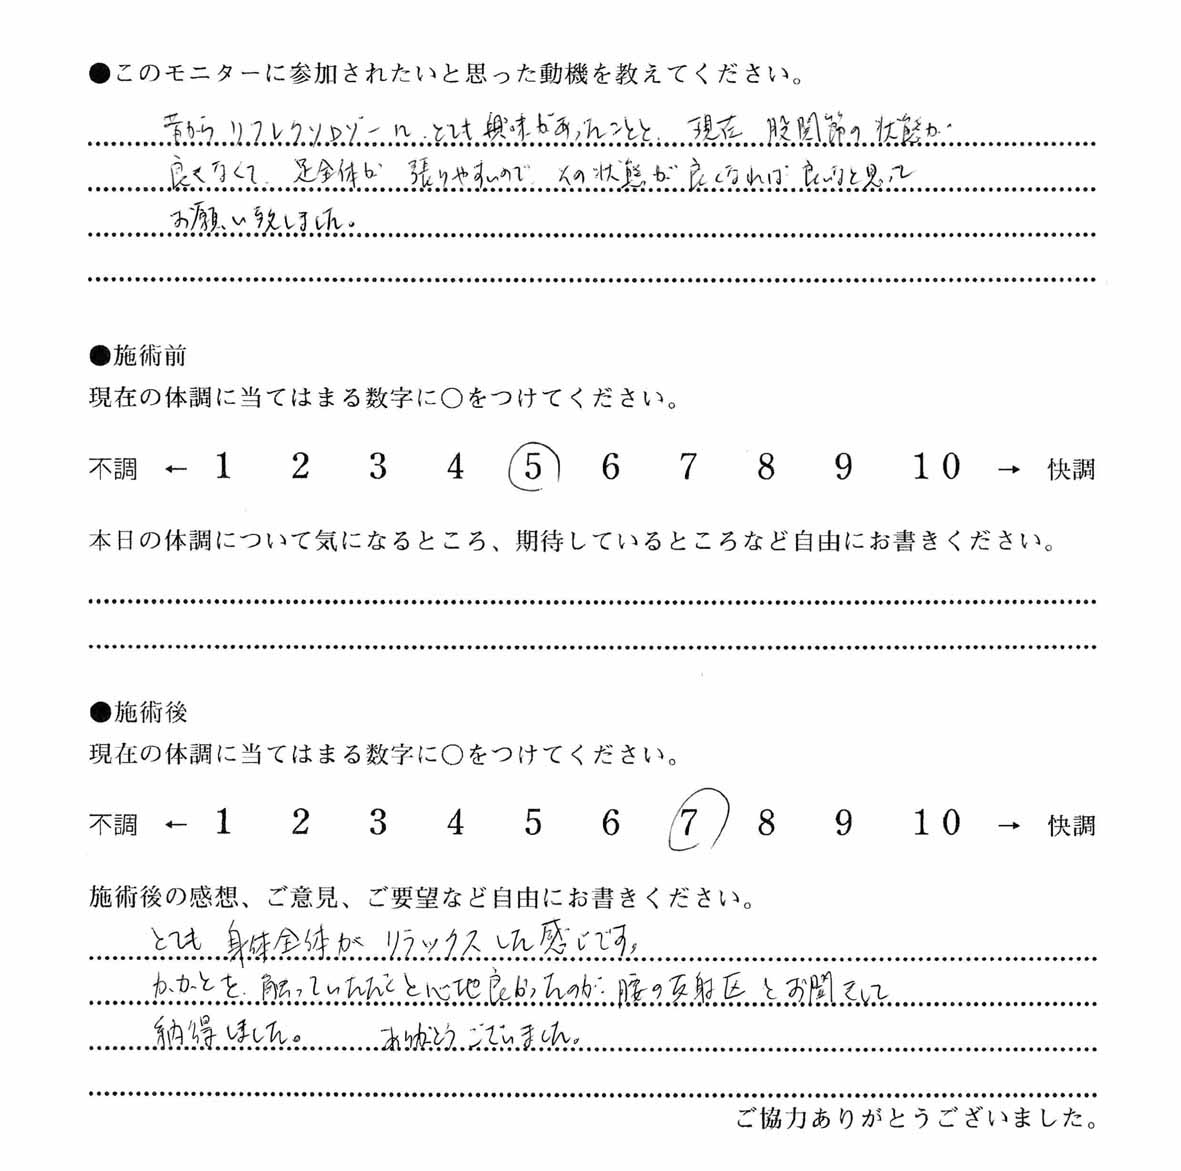 ●このモニターに参加されたいと思った動機を教えてください。
昔から リフレクソロゾール、とても興味があったことと、現在 股関節の状態が
良くなくて、足全体が 張りやすいので、その状態が良くなれば良いなと思って
お願い致しました。
●施術前
現在の体調に当てはまる数字に○をつけてください。
不調 ← 1 2 3 4 5 6 7 8 9 10 → 快調
本日の体調について気になるところ、期待しているところなど自由にお書きください。
●施術後
現在の体調に当てはまる数字に○をつけてください。
不調 ← 1 2 3 4 5 6 7 8 9 10 → 快調
施術後の感想、ご意見、ご要望など自由にお書きください。
とても 身体全体が リラックスした感じです。
かかとを、触っていただくと心地良かったのが、腰の反射区とお聞きして
納得しました。 ありがとうございました。
ご協力ありがとうございました。